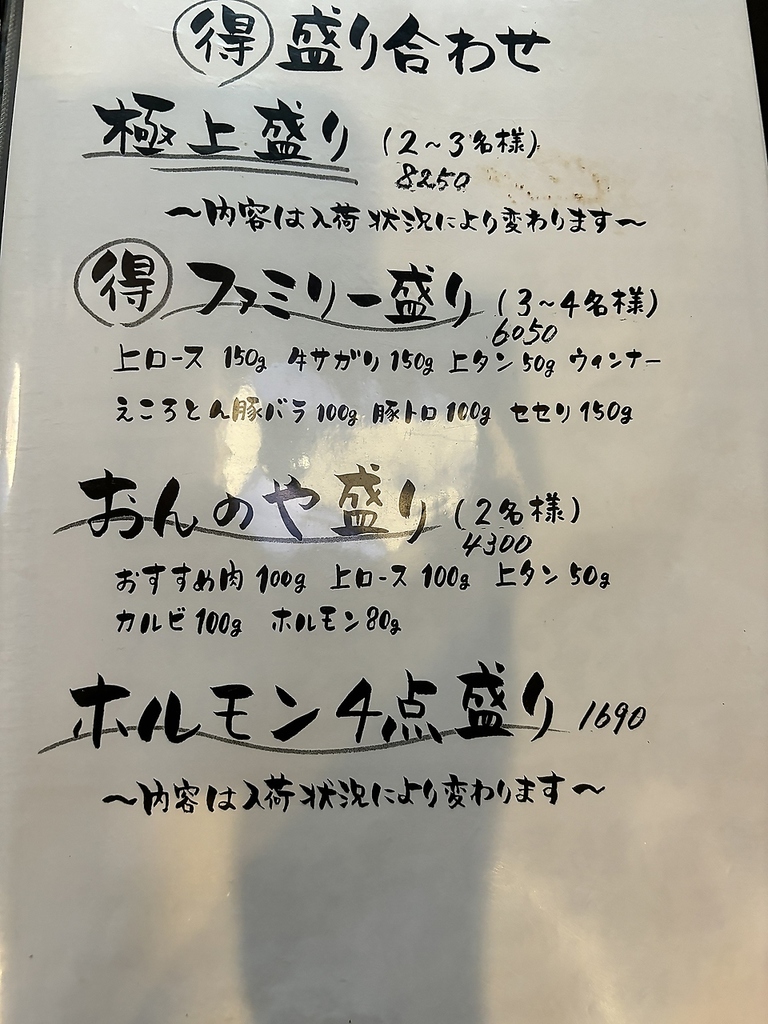 得 盛り合わせ
極上盛り (2～3名様)
8250
～内容は入荷状況により変わります～
得 ファミリー盛り (3～4名様)
6050
上ロース 150g 牛サガリ 150g 上タン 50g ウィンナー
えころとん豚バラ 100g 豚トロ 100g セセリ 150g
おんのや盛り (2名様)
4300
おすすめ肉 100g 上ロース 100g 上タン 50g
カルビ 100g ホルモン 80g
ホルモン4点盛り 1690
～内容は入荷状況により変わります～